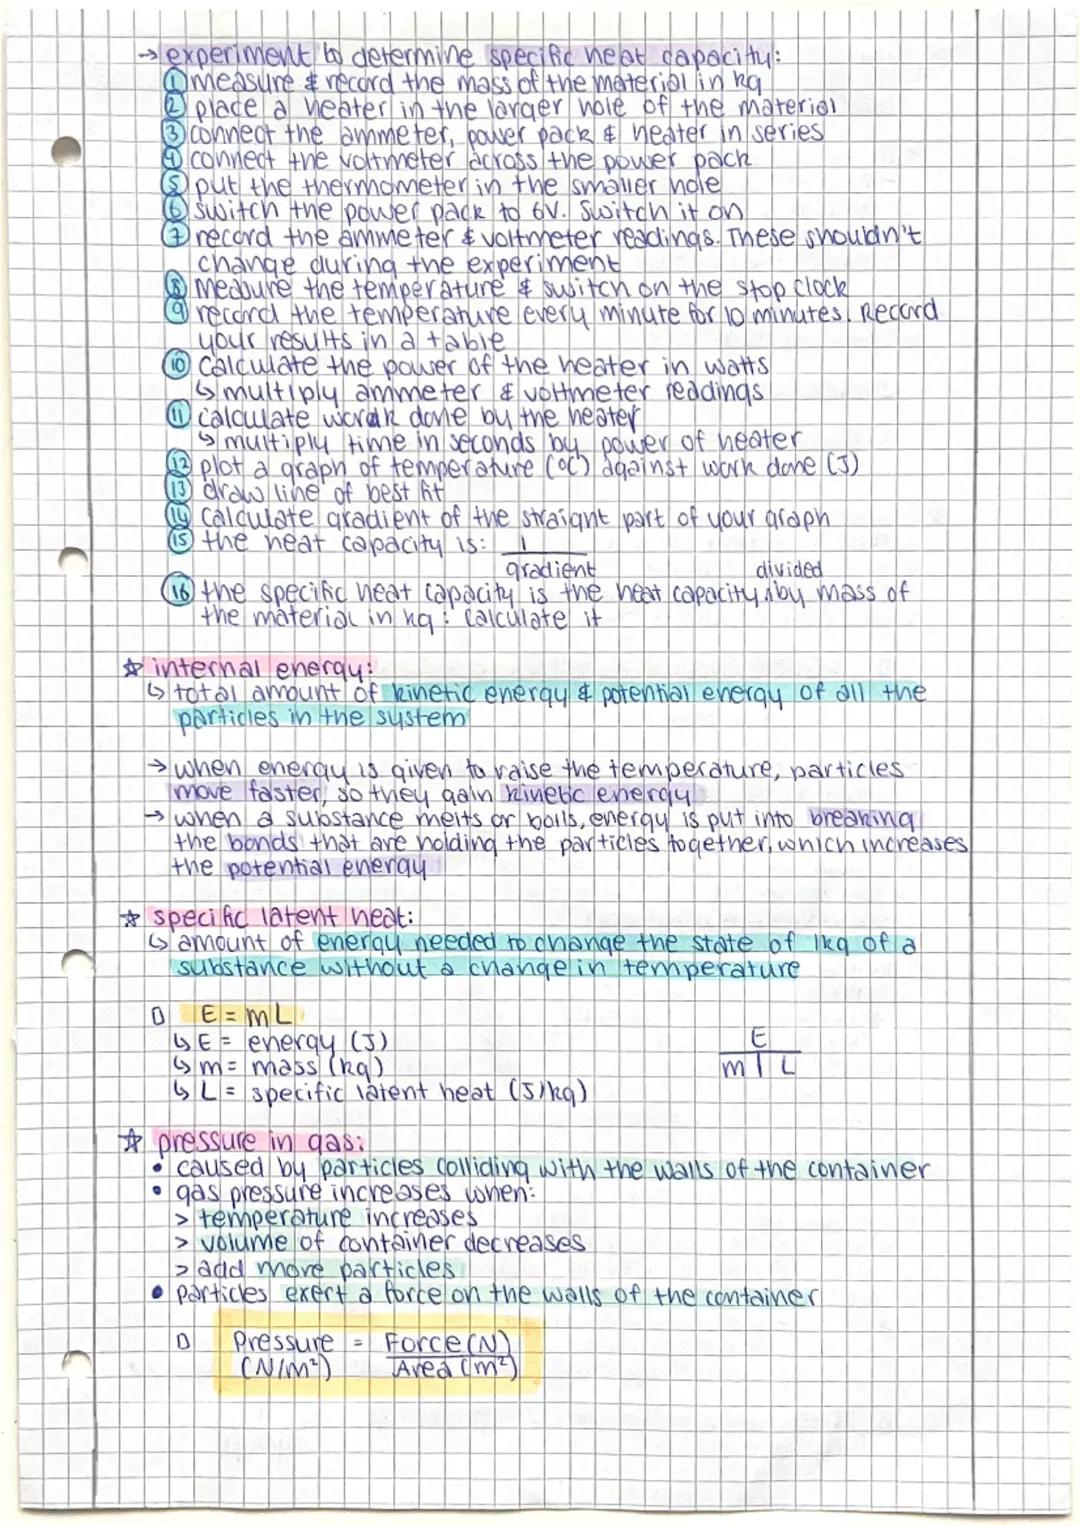 → experiment to determine specific heat capacity:
① measure & record the mass of the material in kg
② place a heater in the larger hole of the material
③ connect the ammeter, power pack & heater in series
④ connect the voltmeter across the power pack
⑤ put the thermometer in the smaller hole
⑥ switch the power pack to 6V. Switch it on
⑦ record the ammeter & voltmeter readings. These shouldn't
change during the experiment
⑧ measure the temperature & switch on the stop clock
⑨ record the temperature every minute for 10 minutes. Record
your results in a table
⑩ calculate the power of the heater in watts
↳ multiply ammeter & voltmeter readings
⑪ calculate work done by the heater
↳ multiply time in seconds by power of heater
⑫ plot a graph of temperature (°C) against work done (J)
⑬ draw line of best fit
⑭ calculate gradient of the straight part of your graph
⑮ the heat capacity is: 1
gradient
divided
⑯ the specific heat capacity is the heat capacity ∧ by mass of
the material in kg : calculate it
☆ internal energy:
↳ total amount of kinetic energy & potential energy of all the
particles in the system
→ when energy is given to raise the temperature, particles
move faster, so they gain kinetic energy
→ when a substance melts or boils, energy is put into breaking
the bonds that are holding the particles together, which increases
the potential energy
☆ specific latent heat:
↳ amount of energy needed to change the state of 1kg of a
substance without a change in temperature
▯ E = mL
↳ E = energy (J)
E
↳ m = mass (kg)
m | L
↳ L = specific latent heat (J/kg)
☆ pressure in gas:
• caused by particles colliding with the walls of the container
• gas pressure increases when:
> temperature increases
> volume of container decreases
> add more particles
• particles exert a force on the walls of the container
▯ Pressure = Force (N)
(N/m²) Area (m²)